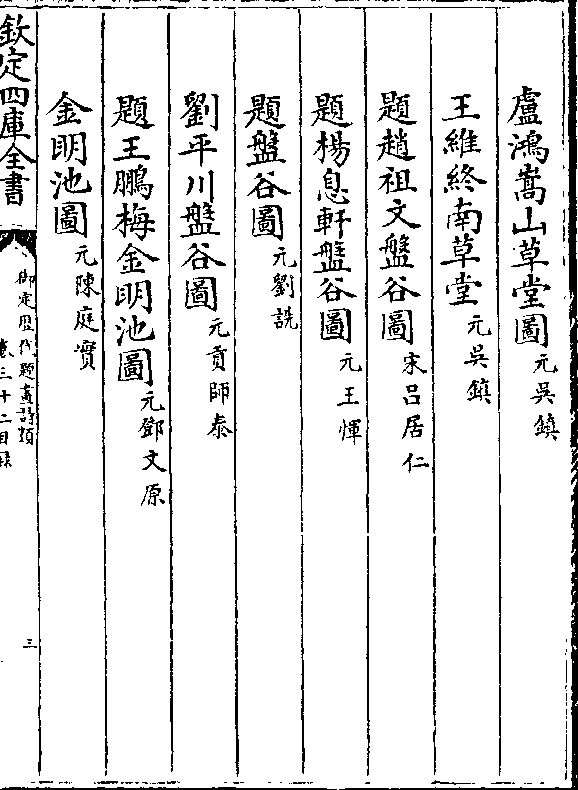 盧鴻嵩山草堂圖元吳鎮
王維終南草堂元吳鎮
題趙祖文盤谷圖宋呂居仁
題楊息軒盤谷圖元王惲
題盤谷圖元劉詵
劉平川盤谷圖元貢師泰
題王鵬梅金明池圖元鄧文原
金明池圖元陳庭實
欽定四庫全書
御定歷代題畫詩類
卷三十二目錄
三